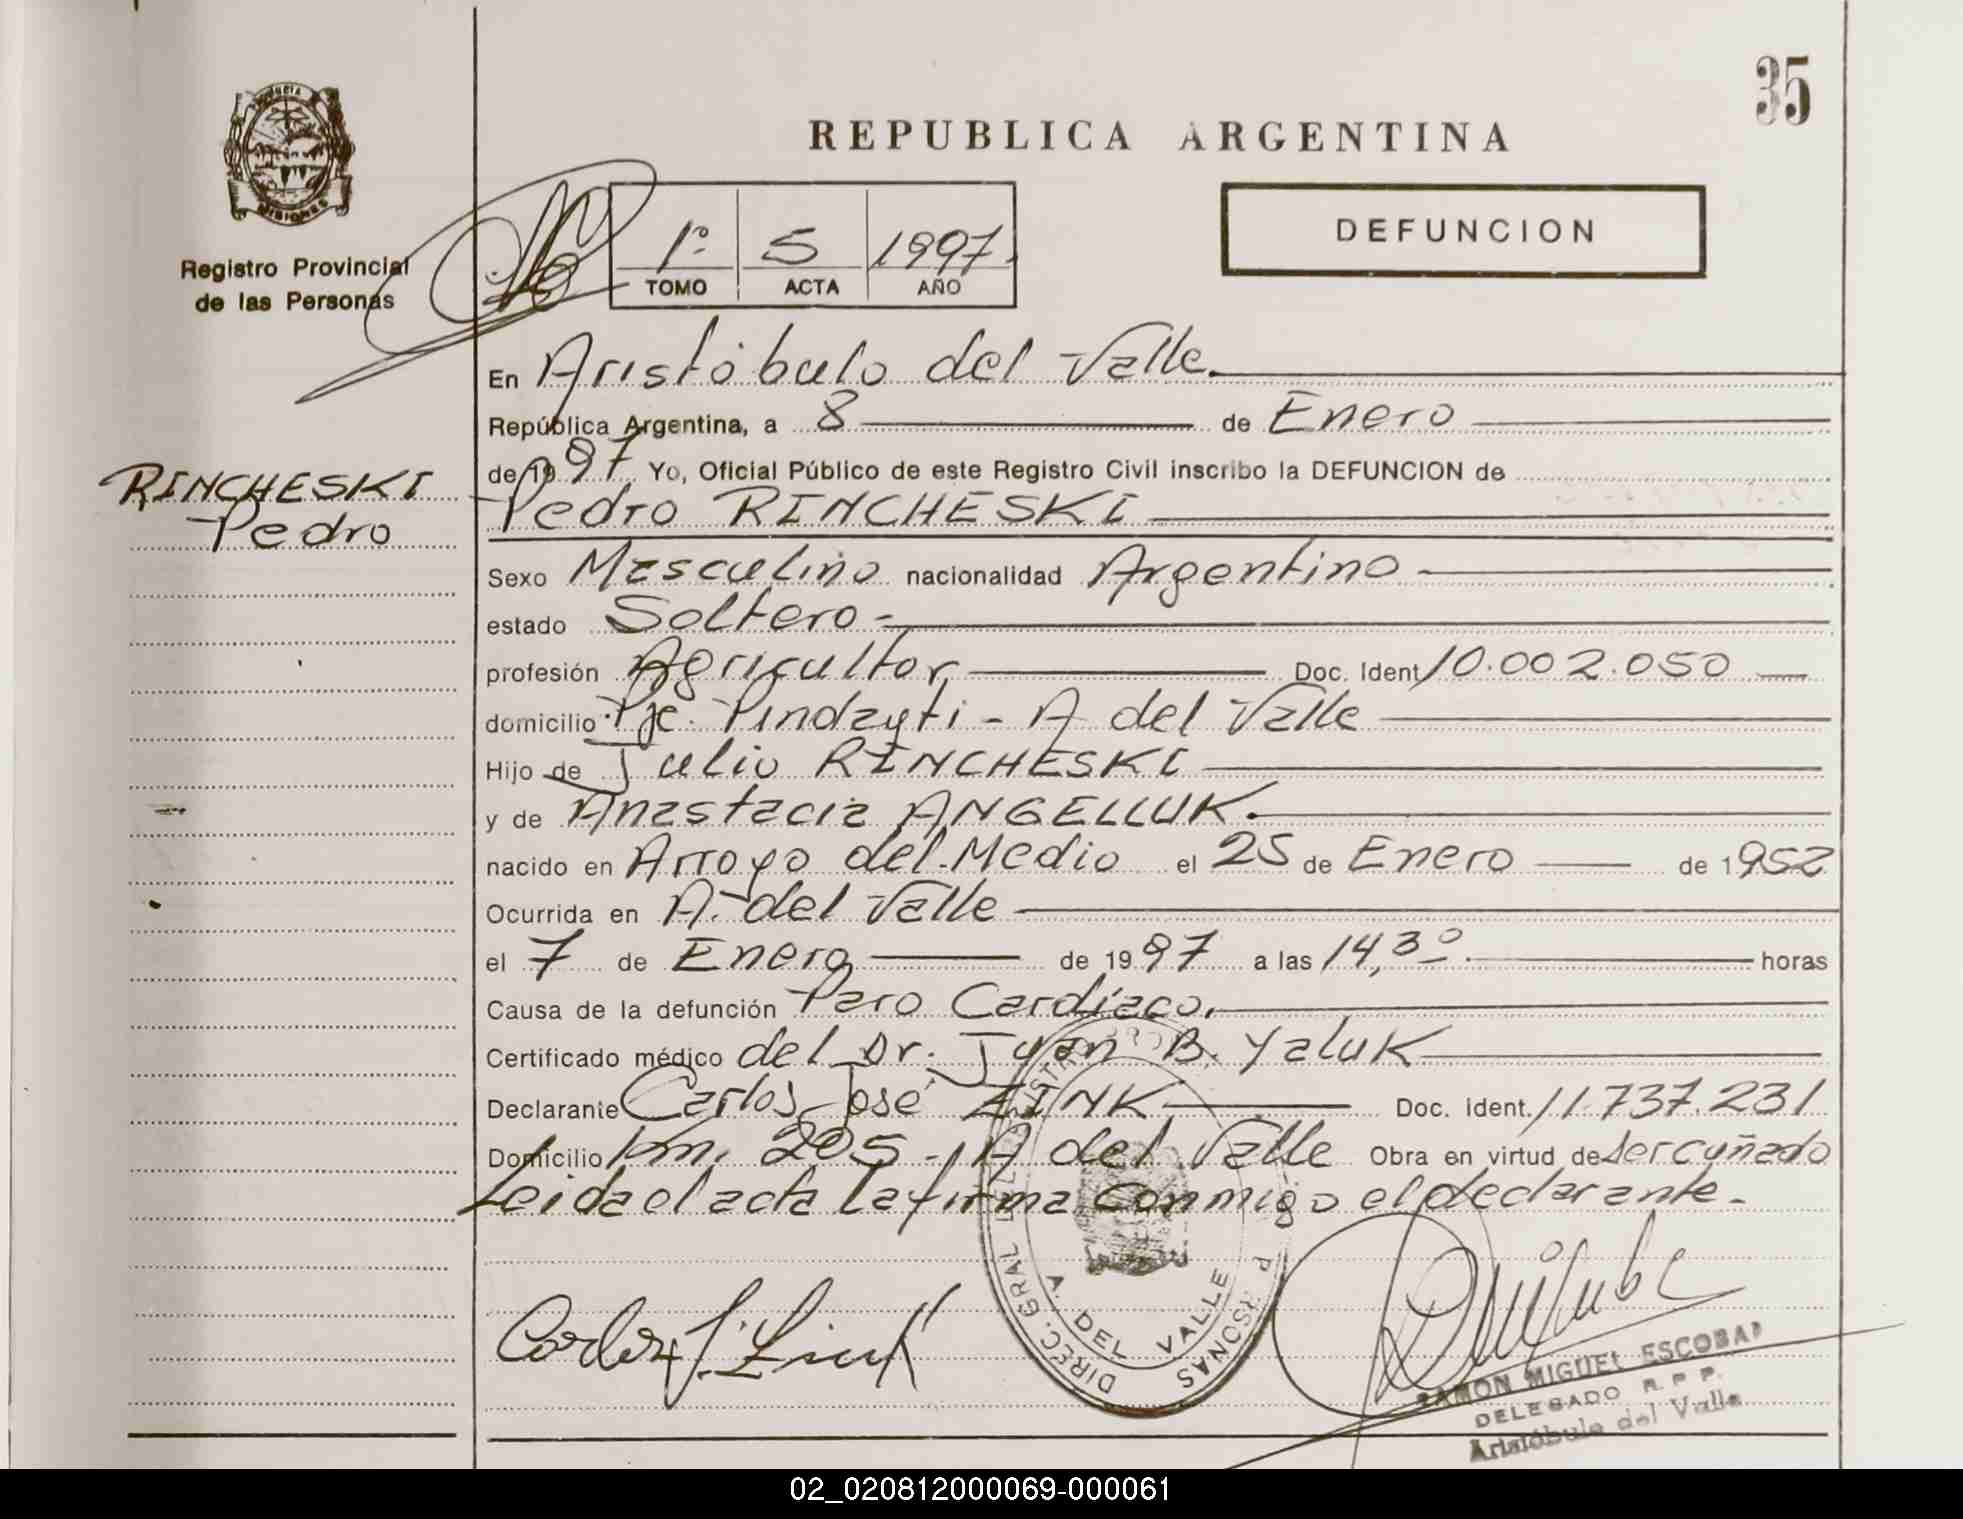 35
REPUBLICA ARGENTINA
Provincia
MISIONES
Registro Provincial
de las Personas
1º 5 1997
TOMO ACTA AÑO
DEFUNCION
En Aristóbulo del Valle.
República Argentina, a 8 de Enero
de 1997 Yo, Oficial Público de este Registro Civil inscribo la DEFUNCION de
RINCHESKI
Pedro
Pedro RINCHESKI
Sexo Masculino nacionalidad Argentino
estado Soltero
profesión Agricultor Doc. Ident. 10.002.050
domicilio Pje. Pindayti - A del Valle
Hijo de Julio RINCHESKI
y de Anastacia ANGELLUK.
nacido en Arroyo del Medio el 25 de Enero de 1952
Ocurrida en A. del Valle
el 7 de Enero de 1997 a las 14,30 horas
Causa de la defunción Paro Cardíaco.
Certificado médico del Dr. Juan B. Yaluk
Declarante Carlos José ZINK Doc. ident. 11.737.231
Domicilio Km. 205 - A del Valle Obra en virtud de ser cuñado
Leida el acta la firma conmigo el declarante.
Carlos J. Zink
DIREC. GRAL
PERSONAS
A. DEL VALLE
RAMON MIGUEL ESCOBAR
DELEGADO R. P. P.
Aristóbulo del Valle
02_020812000069-000061